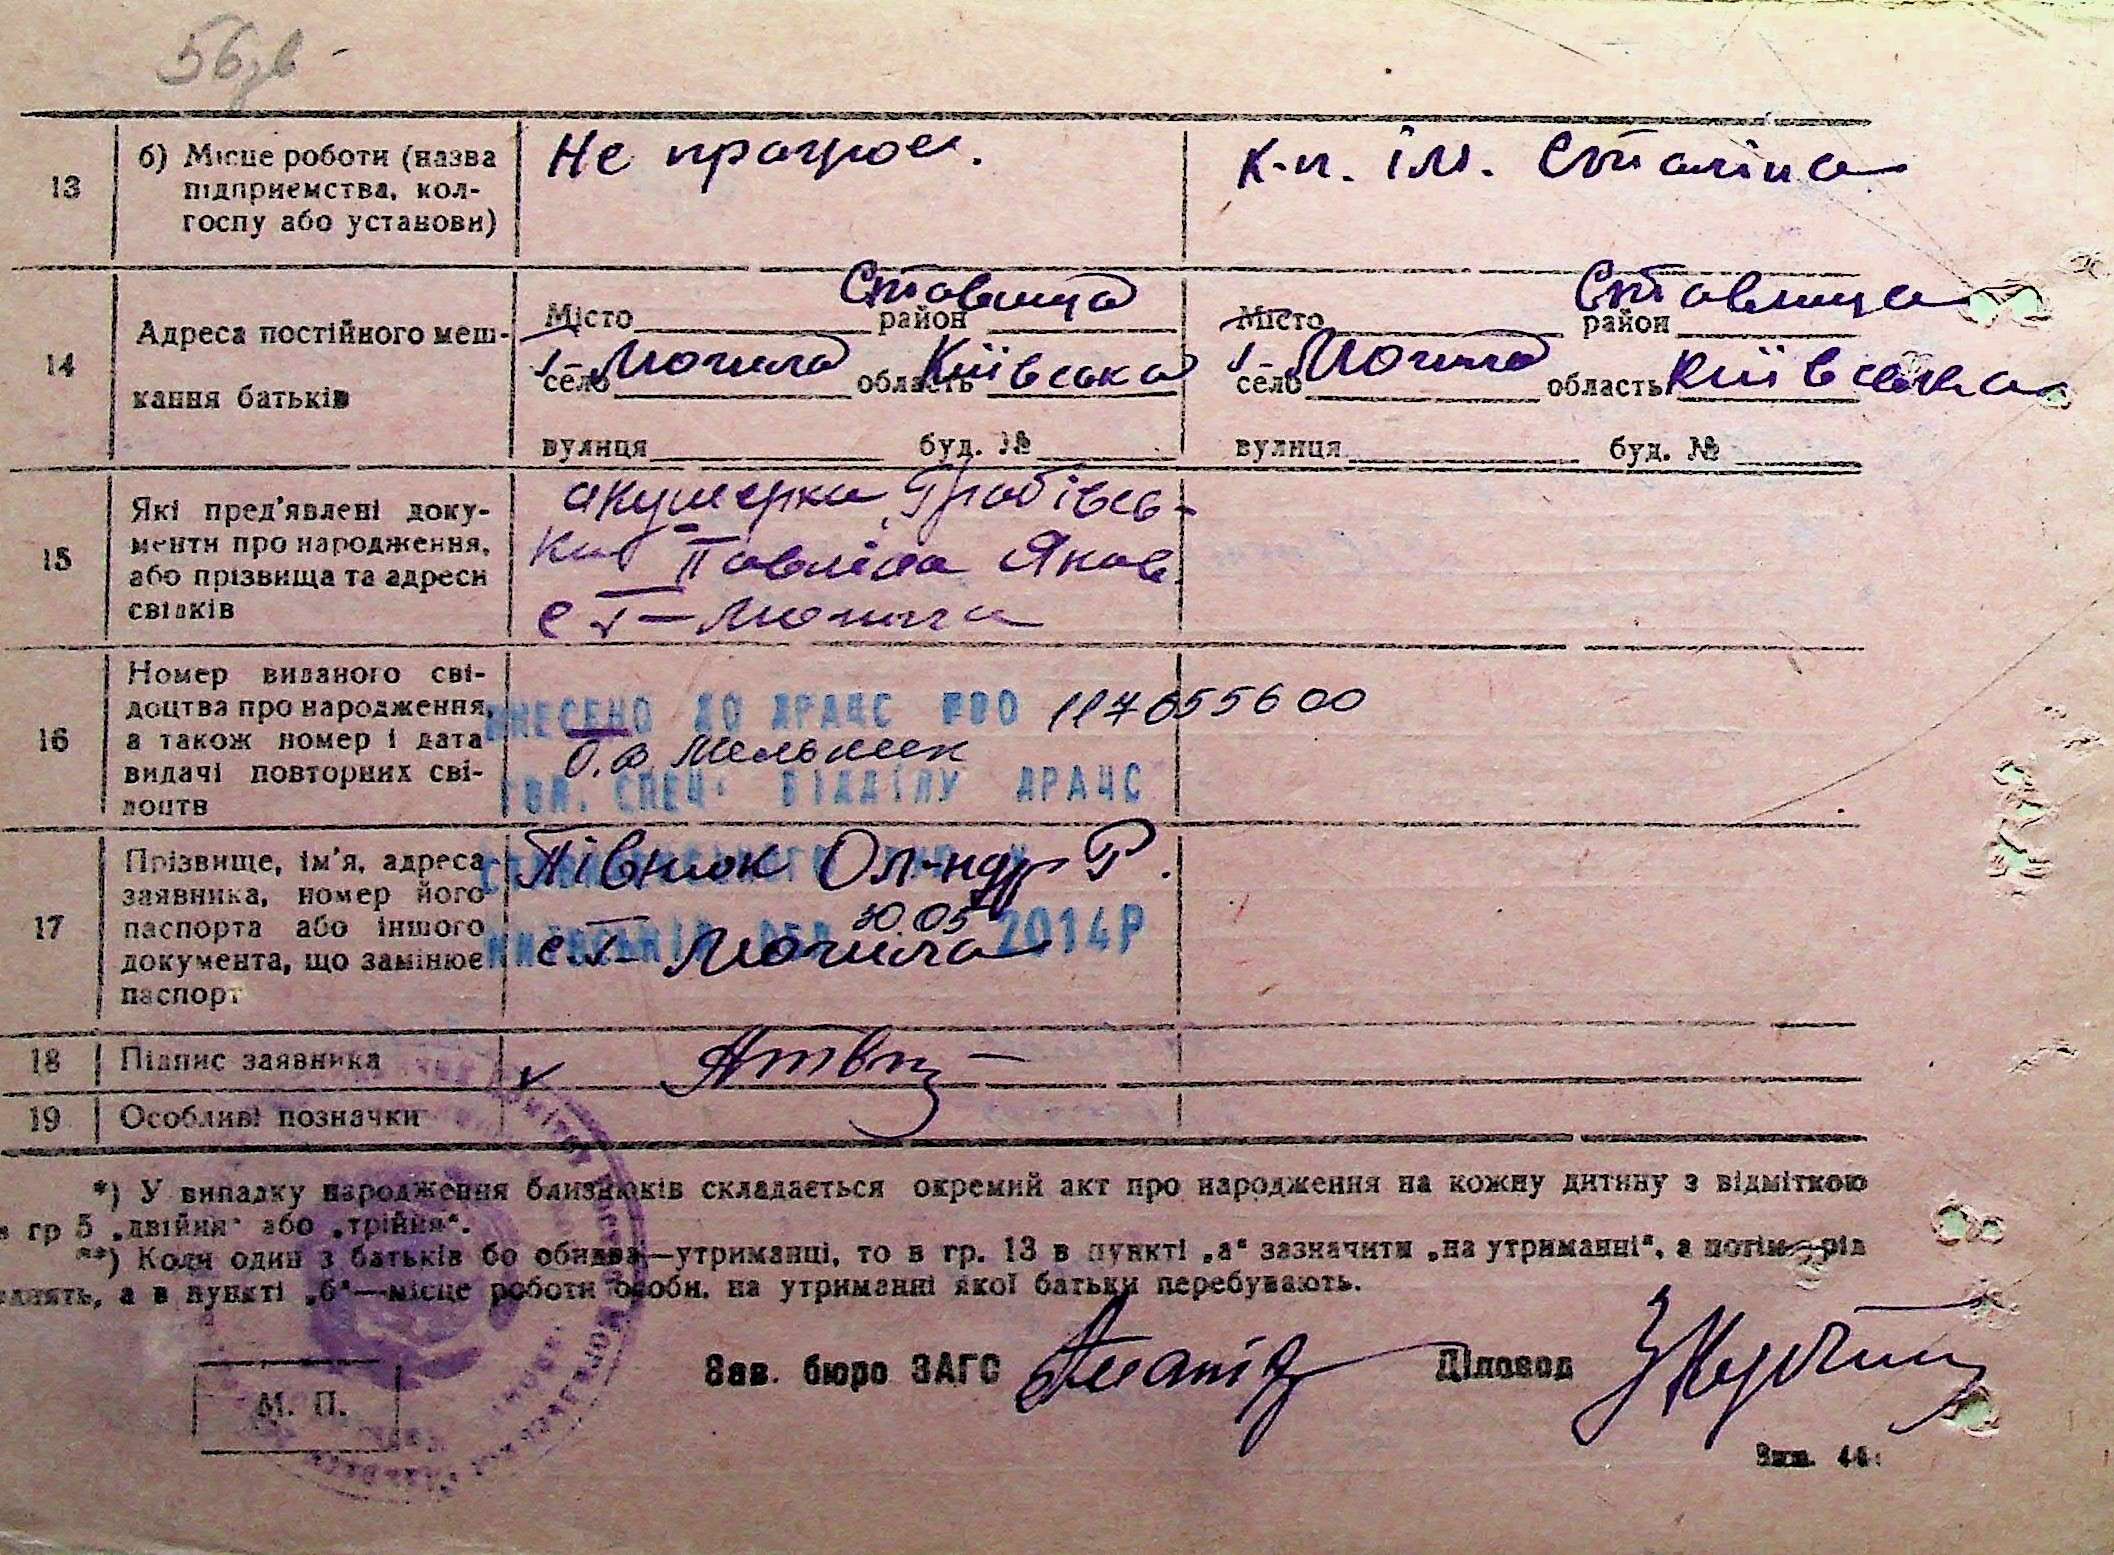 56 зв
13
б) Місце роботи (назва
підприємства, кол-
госпу або установи)
Не працює.
к-п. ім. Сталіна
14
Адреса постійного меш-
кання батьків
Місто район Ставища
село Г-Могила область Київська
вулиця буд. №
Місто район Ставища
село Г-Могила область Київська
вулиця буд. №
15
Які пред'явлені доку-
менти про народження,
або прізвища та адреси
свідків
акушерка Грабівсь-
ка Яков.
с Г-Могила
16
Номер виданого сві-
доцтва про народження,
а також номер і дата
видачі повторних сві-
доцтв
ВНЕСЕНО ДО ДРАЦС 117655600
О.В. Мельник
СПЕЦ. ВІДДІЛУ ДРАЦС
17
Прізвище, ім'я, адреса
заявника, номер його
паспорта або іншого
документа, що замінює
паспорт
Півнюк Ол-ндр Г.
30.05 2014Р
с Г-Могила
18
Підпис заявника
19
Особливі позначки
*) У випадку народження близнюків складається окремий акт про народження на кожну дитину з відміткою
в гр 5 „двійня“ або „трійня“.
**) Коли один з батьків бо обидва—утриманці, то в гр. 13 в пункті „а“ зазначити „на утриманні“, а потім рід
а в пункті „б“—місце роботи особи, на утриманні якої батьки перебувають.
Зав. бюро ЗАГС
Діловод
М. П.